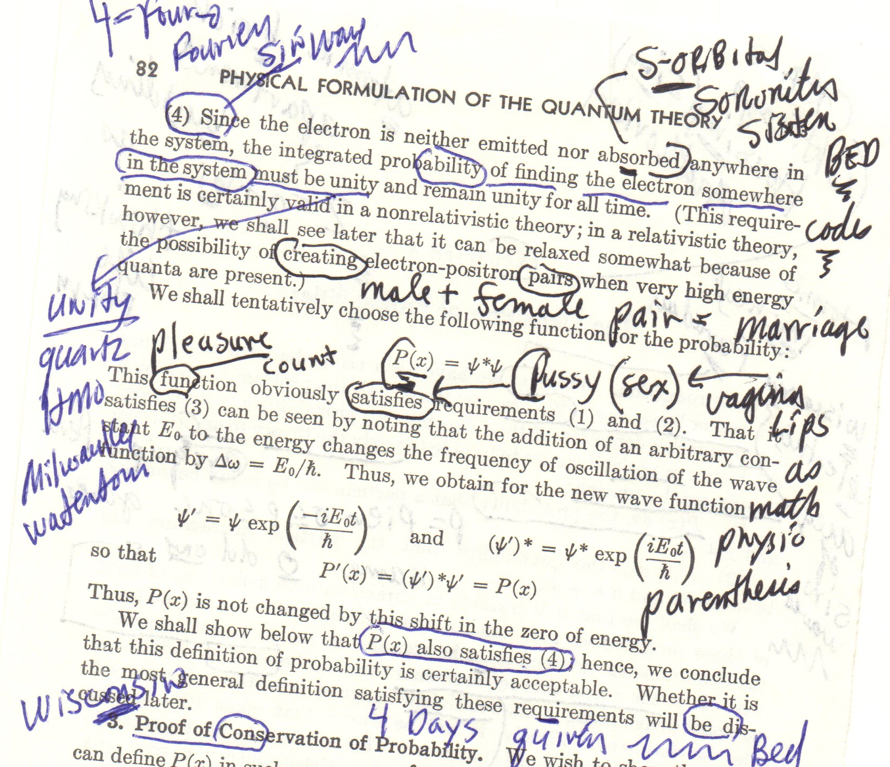 4 = Four
Fourier
sinway
82 PHYSICAL FORMULATION OF THE QUANTUM THEORY
S-ORBital
Sororities
(4) Since the electron is neither emitted nor absorbed anywhere in
BED
the system, the integrated probability of finding the electron somewhere
in the system must be unity and remain unity for all time. (This require-
codes
ment is certainly valid in a nonrelativistic theory; in a relativistic theory,
however, we shall see later that it can be relaxed somewhat because of
the possibility of creating electron-positron pairs when very high energy
quanta are present.)
male + female pair = marriage
We shall tentatively choose the following function for the probability:
unity
quartz
HMO
Milwaukee
pleasure
count
P(x) = ψ*ψ
Pussy (sex)
vagina
Lips
as
math
physic
parenthesis
This function obviously satisfies requirements (1) and (2). That it
satisfies (3) can be seen by noting that the addition of an arbitrary con-
stant E₀ to the energy changes the frequency of oscillation of the wave
function by Δω = E₀/ħ. Thus, we obtain for the new wave function
ψ′ = ψ exp (−iE₀t/ħ) and (ψ′)* = ψ* exp (iE₀t/ħ)
so that
P′(x) = (ψ′)*ψ′ = P(x)
Thus, P(x) is not changed by this shift in the zero of energy.
We shall show below that P(x) also satisfies (4); hence, we conclude
that this definition of probability is certainly acceptable. Whether it is
the most general definition satisfying these requirements will be dis-
cussed later.
Wisconsin
4 Days quiver Bed
3. Proof of Conservation of Probability. We wish to
can define P(x) in